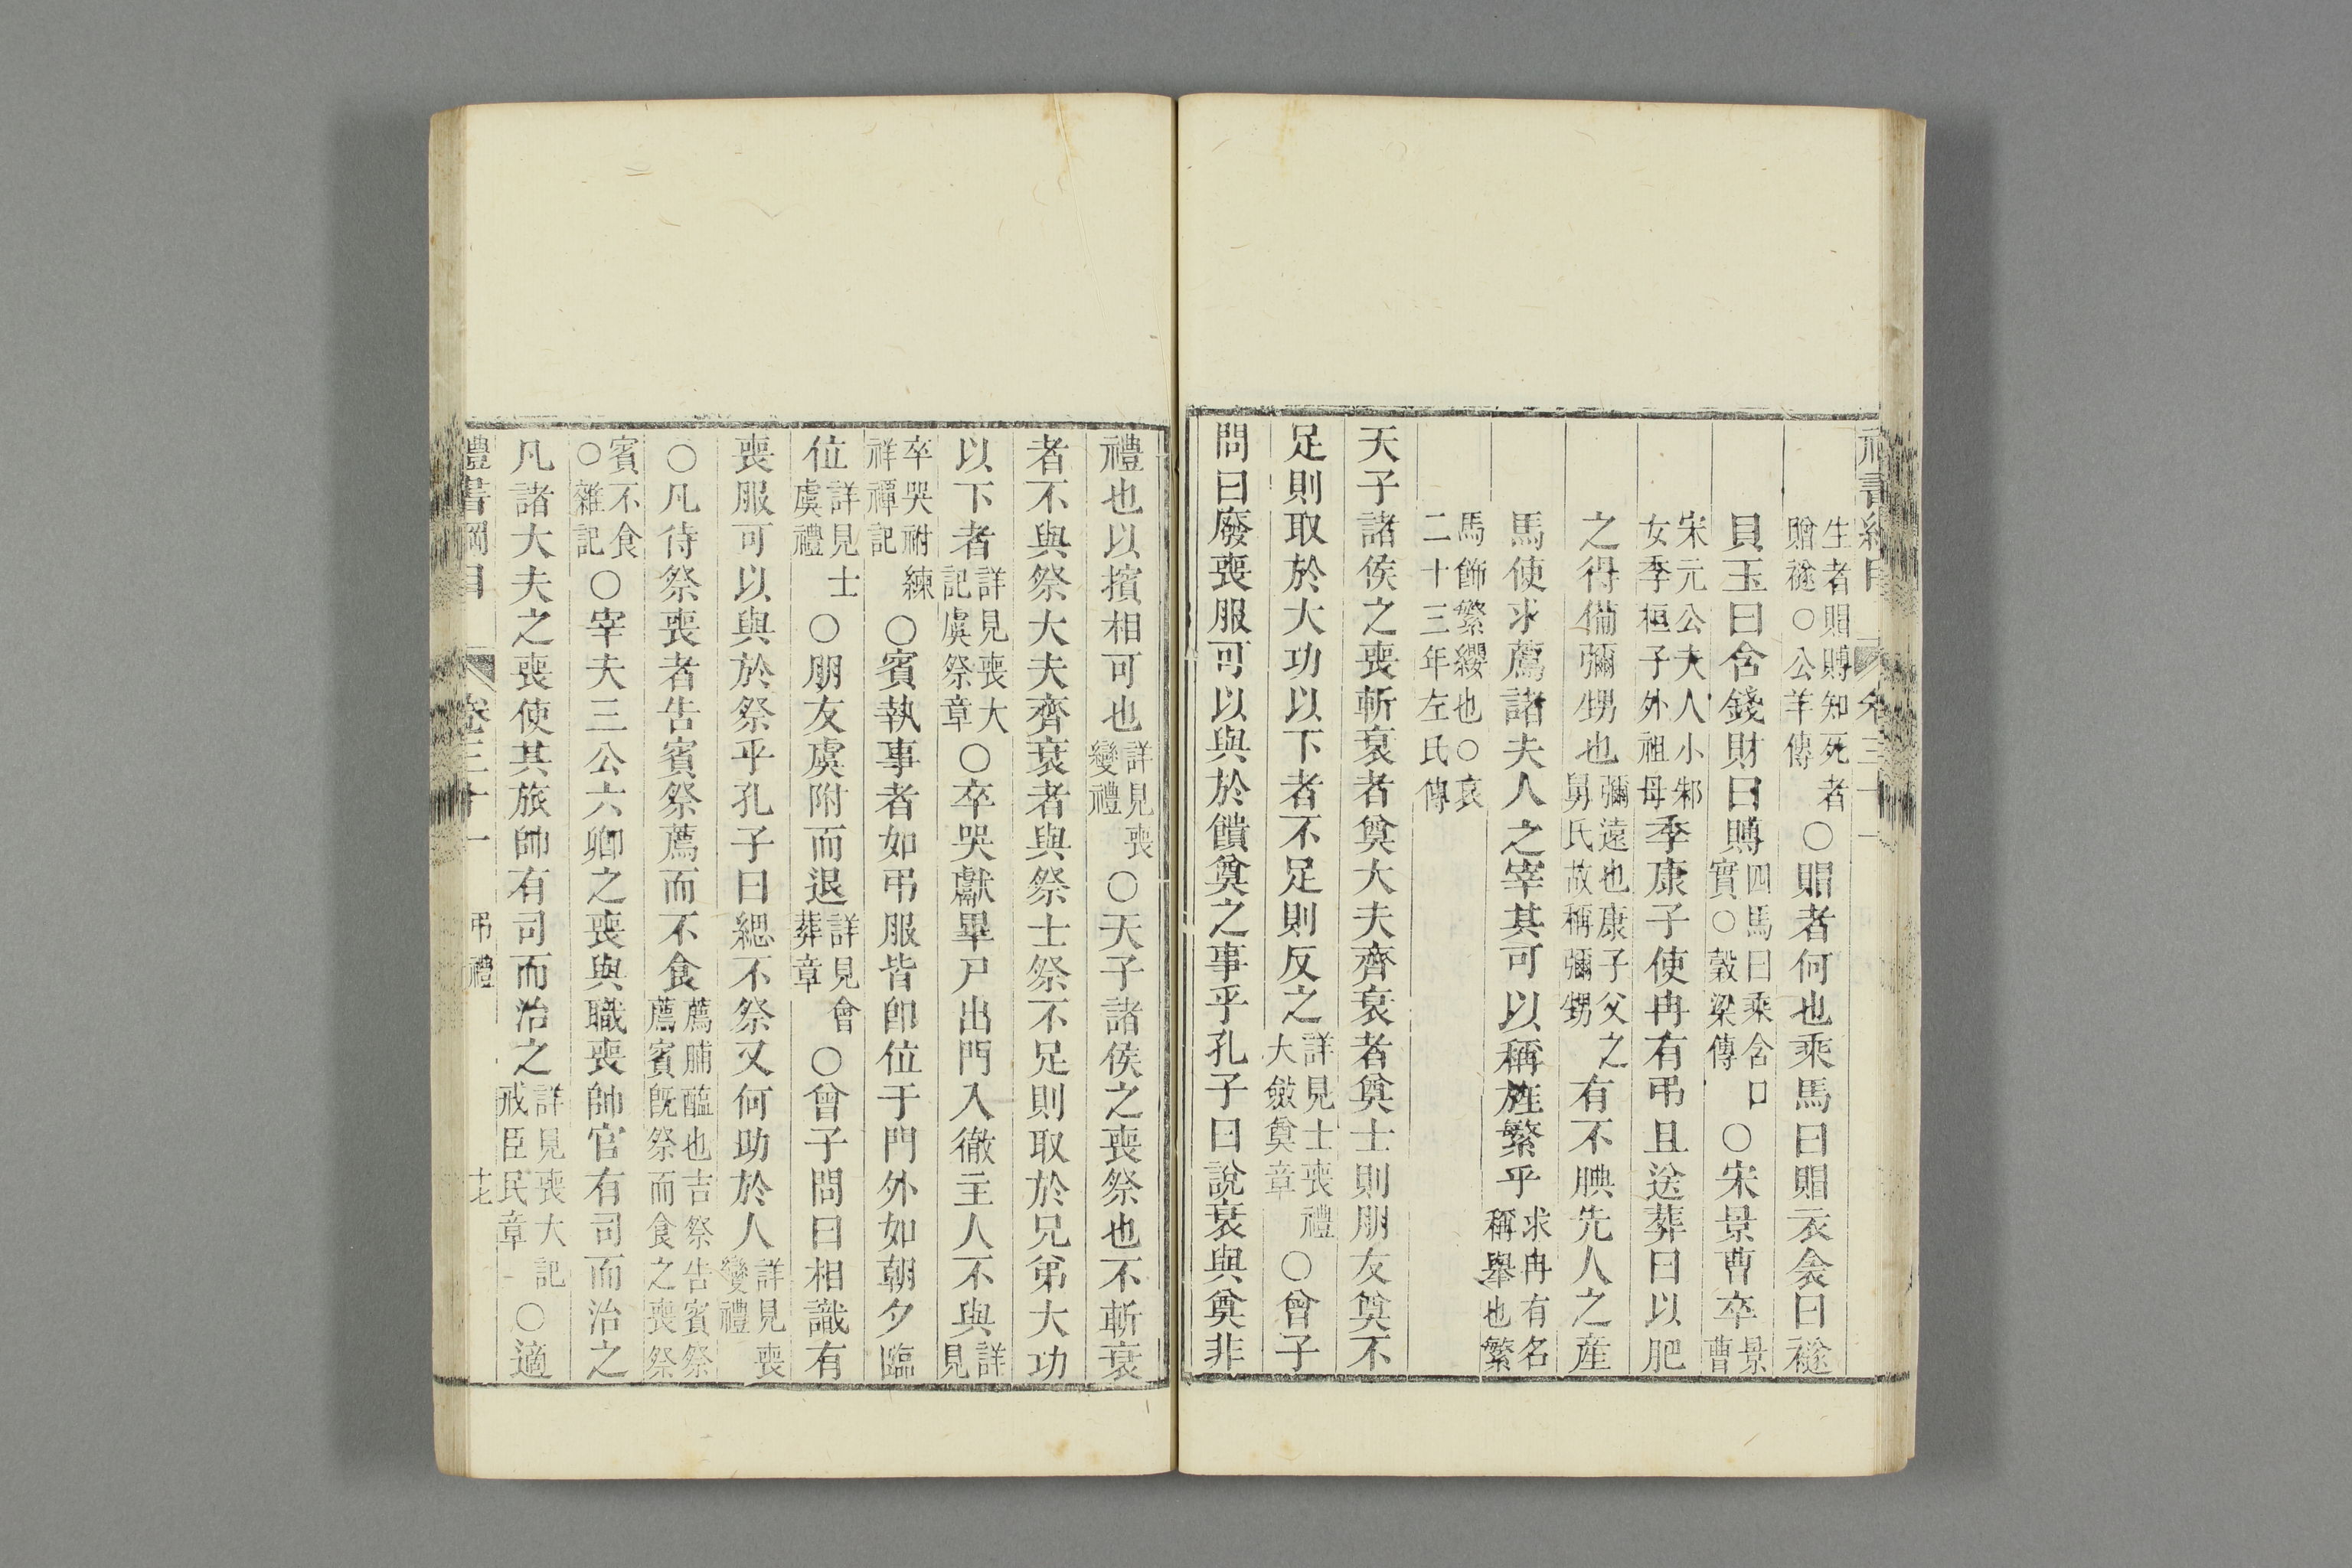 禮書綱目 卷三十一
生者賵賻知死者贈襚○公羊傳○賵者何也乘馬曰賵衣衾曰襚
貝玉曰含錢財曰賻四馬曰乘含口實○穀梁傳○宋景曹卒景曹
宋元公夫人小邾女季桓子外祖母季康子使冉有弔且送葬曰以肥
之得備彌甥也彌遠也康子父之舅氏故稱彌甥有不腆先人之産
馬使求薦諸夫人之宰其可以稱旌繁乎求冉有名稱舉也繁
馬飾繁纓也○哀二十三年左氏傳
天子諸侯之喪斬衰者奠大夫齊衰者奠士則朋友奠不
足則取於大功以下者不足則反之詳見士喪禮大斂奠章○曾子
問曰廢喪服可以與於饋奠之事乎孔子曰說衰與奠非
禮也以擯相可也詳見喪變禮○天子諸侯之喪祭也不斬衰
者不與祭大夫齊衰者與祭士祭不足則取於兄弟大功
以下者詳見喪大記虞祭章○卒哭獻畢尸出門入徹主人不與詳見
卒哭祔練祥禫記○賓執事者如弔服皆卽位于門外如朝夕臨
位詳見士虞禮○朋友虞附而退詳見會葬章○曾子問曰相識有
喪服可以與於祭乎孔子曰緦不祭又何助於人詳見喪變禮
○凡待祭喪者告賓祭薦而不食薦脯醢也吉祭告賓祭薦賓旣祭而食之喪祭
賓不食○雜記○宰夫三公六卿之喪與職喪帥官有司而治之
凡諸大夫之喪使其旅帥有司而治之詳見喪大記戒臣民章○適
禮書綱目 卷三十一 弔禮 十七